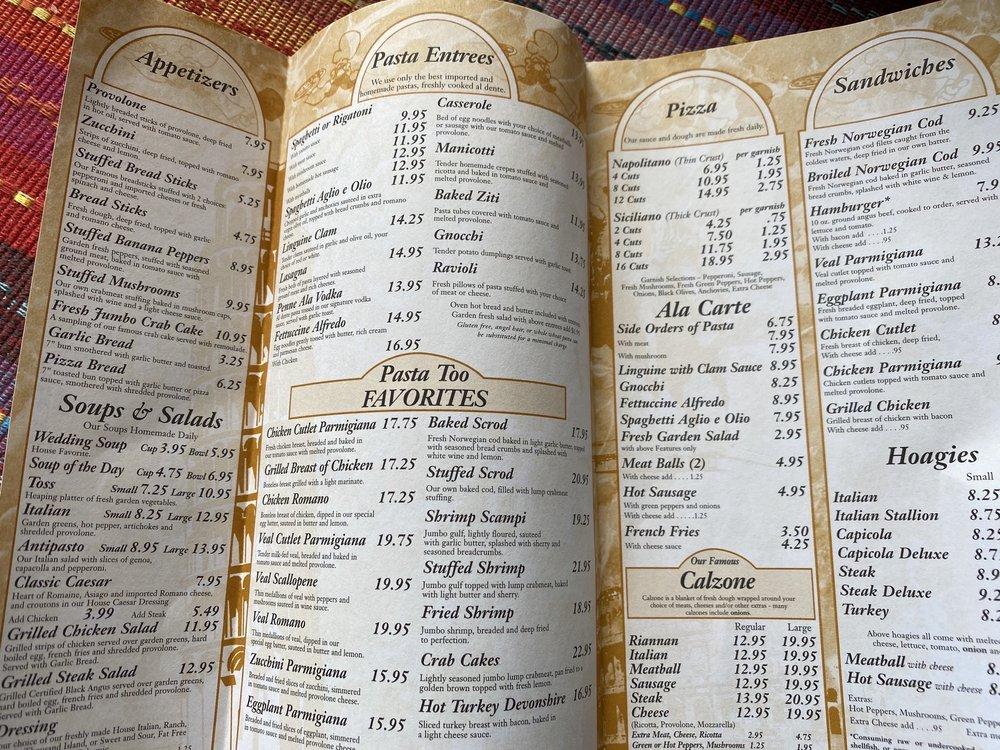 Appetizers
Provolone
Lightly breaded sticks of provolone, deep fried
in hot oil, served with tomato sauce. 7.95
Zucchini
Strips of zucchini, deep fried, topped with romano
cheese and lemon. 7.95
Stuffed Bread Sticks
Our Famous breadsticks stuffed with 2 choices:
pepperoni and imported cheeses or fresh
spinach and cheese. 5.25
Bread Sticks
Fresh dough, deep fried, topped with garlic
and romano cheese. 4.75
Stuffed Banana Peppers
Garden fresh peppers, stuffed with seasoned
ground meat, baked in tomato sauce with
melted provolone. 8.95
Stuffed Mushrooms
Our own crabmeat stuffing baked in mushroom caps,
splashed with a light cheese sauce. 9.95
Fresh Jumbo Crab Cake 10.95
A sampling of our famous crab cake served with remoulade.
Garlic Bread 3.25
7" bun smothered with garlic butter and toasted.
Pizza Bread 6.25
7" toasted bun topped with garlic butter or pizza
sauce, smothered with shredded provolone.
Soups & Salads
Our Soups Homemade Daily
Wedding Soup Cup 3.95 Bowl 5.95
House Favorite.
Soup of the Day Cup 4.75 Bowl 6.95
Toss Small 7.25 Large 10.95
Heaping platter of fresh garden vegetables.
Italian Small 8.25 Large 12.95
Garden greens, hot pepper, artichokes and
shredded provolone.
Antipasto Small 8.95 Large 13.95
Our Italian salad with slices of genoa,
capacolla and pepperoni.
Classic Caesar 7.95
Heart of Romaine, Asiago and imported Romano cheese,
and croutons in our House Caesar Dressing
Add Chicken 3.99 Add Steak 5.49
Grilled Chicken Salad 11.95
Grilled strips of chicken served over garden greens, hard
boiled egg, french fries and shredded provolone.
Served with Garlic Bread.
Grilled Steak Salad 12.95
Grilled Certified Black Angus served over garden greens,
hard boiled egg, french fries and shredded provolone.
Served with Garlic Bread.
Dressing
our choice of our freshly made House Italian, Ranch,
Island, or Sweet and Sour, Fat Free
Pasta Entrees
We use only the best imported and
homemade pastas, freshly cooked al dente.
Spaghetti or Rigatoni 9.95
With tomato sauce 11.95
With meat sauce 11.95
With mushroom sauce 12.95
With homemade hot sausage 12.95
Spaghetti Aglio e Olio 11.95
garlic and anchovies sauteed in extra
virgin olive oil, topped with bread crumbs and romano
cheese.
Linguine Clam 14.25
Tender clams sauteed in garlic and olive oil, your
choice of red or white.
Lasagna 14.95
Fresh beds of pasta layered with seasoned
ground meat and rich cheeses.
Penne Ala Vodka 13.95
Al dente pasta tossed in our signature vodka
sauce, served with garlic toast.
Fettuccine Alfredo 14.95
Egg noodles gently tossed with butter, rich cream
and parmesan cheese.
With Chicken 16.95
Casserole
Bed of egg noodles with your choice of meatballs
or sausage with our tomato sauce and melted
provolone. 13.95
Manicotti
Tender homemade crepes stuffed with seasoned
ricotta and baked in tomato sauce and
melted provolone. 13.95
Baked Ziti
Pasta tubes covered with tomato sauce and
melted provolone. 11.95
Gnocchi
Tender potato dumplings served with garlic toast. 13.75
Ravioli
Fresh pillows of pasta stuffed with your choice
of meat or cheese. 14.25
Oven hot bread and butter included with entrees.
Garden fresh salad with above entrees add $1.50
Gluten free, angel hair, or whole wheat pasta can
be substituted for a minimal charge
Pasta Too
FAVORITES
Chicken Cutlet Parmigiana 17.75
Fresh chicken breast, breaded and baked in
our tomato sauce with melted provolone.
Grilled Breast of Chicken 17.25
Boneless breast grilled with a light marinate.
Chicken Romano 17.25
Boneless breast of chicken, dipped in our special
egg batter, sauteed in butter and lemon.
Veal Cutlet Parmigiana 19.75
Tender milk-fed veal, breaded and baked in
tomato sauce with melted provolone.
Veal Scallopene 19.95
Thin medallions of veal with peppers and
mushrooms sauteed in wine sauce.
Veal Romano 19.95
Thin medallions of veal, dipped in our
special egg batter, sauteed in butter and lemon.
Zucchini Parmigiana 15.95
Breaded and fried slices of zucchini, simmered
in tomato sauce and melted provolone cheese.
Eggplant Parmigiana 15.95
Breaded and fried slices of eggplant, simmered
in tomato sauce and melted provolone cheese.
Baked Scrod 17.95
Fresh Norwegian cod baked in light garlic butter, topped
with seasoned bread crumbs and splashed with
white wine and lemon.
Stuffed Scrod 20.95
Our own baked cod, filled with lump crabmeat
stuffing.
Shrimp Scampi 19.25
Jumbo gulf, lightly floured, sauteed
with garlic butter, splashed with sherry and
seasoned breadcrumbs.
Stuffed Shrimp 21.95
Jumbo gulf topped with lump crabmeat, baked
with light butter and sherry.
Fried Shrimp 18.95
Jumbo shrimp, breaded and deep fried
to perfection.
Crab Cakes 22.95
Lightly seasoned jumbo lump crabmeat, pan fried to a
golden brown topped with fresh lemon.
Hot Turkey Devonshire 16.95
Sliced turkey breast with bacon, baked in
a light cheese sauce.
Pizza
Our sauce and dough are made fresh daily.
Napolitano (Thin Crust) per garnish
4 Cuts 6.95 1.25
8 Cuts 10.95 1.95
12 Cuts 14.95 2.75
Siciliano (Thick Crust) per garnish
2 Cuts 4.25 .75
4 Cuts 7.50 1.25
8 Cuts 11.75 1.95
16 Cuts 18.95 2.95
Garnish Selections – Pepperoni, Sausage,
Fresh Mushrooms, Fresh Green Peppers, Hot Peppers,
Onions, Black Olives, Anchovies, Extra Cheese
Ala Carte
Side Orders of Pasta 6.75
With meat 7.95
With mushroom 7.95
Linguine with Clam Sauce 8.95
Gnocchi 8.25
Fettuccine Alfredo 8.95
Spaghetti Aglio e Olio 7.95
Fresh Garden Salad 2.95
with above Features only
Meat Balls (2) 4.95
With cheese add . . . . 1.25
Hot Sausage 4.95
With green peppers and onions
With cheese add . . . .1.25
French Fries 3.50
With cheese sauce 4.25
Our Famous
Calzone
Calzone is a blanket of fresh dough wrapped around your
choice of meats, cheeses and/or other extras - many
calzones include onions.
Regular Large
Riannan 12.95 19.95
Italian 12.95 19.95
Meatball 12.95 19.95
Sausage 12.95 19.95
Steak 13.95 20.95
Cheese 12.95 19.95
(Ricotta, Provolone, Mozzarella)
Extra Meat, Cheese, Ricotta 2.95 4.75
Green or Hot Peppers, Mushrooms 1.25 1.95
Sandwiches
Fresh Norwegian Cod 9.25
Fresh Norwegian cod filets caught from the
coldest waters, deep fried in our own batter.
Broiled Norwegian Cod 9.95
Fresh Norwegian cod baked in garlic butter, seasoned
bread crumbs, splashed with white wine & lemon.
Hamburger* 7.9
10 oz. ground angus beef, cooked to order, served with
lettuce and tomato.
With bacon add . . . .1.95
With cheese add . . . .95
Veal Parmigiana 13.2
Veal cutlet topped with tomato sauce and
melted provolone.
Eggplant Parmigiana 8.
Fresh breaded eggplant, deep fried, topped
with tomato sauce and melted provolone.
Chicken Cutlet
Fresh breast of chicken, deep fried,
With cheese add . . . .95
Chicken Parmigiana
Chicken cutlets topped with tomato sauce and
melted provolone.
Grilled Chicken
Grilled breast of chicken with bacon
With cheese add . . . .95
Hoagies
Small
Italian 8.25
Italian Stallion 8.75
Capicola 8.25
Capicola Deluxe 8.7
Steak 8.9
Steak Deluxe 9.2
Turkey 8.
Above hoagies all come with melted
cheese, lettuce, tomato, onion and
Meatball with cheese 8.
Hot Sausage with cheese 8.
Extras:
Hot Peppers, Mushrooms, Green Peppers
Extra Cheese add . . . .95
*Consuming raw or undercooked
shellfish, or eggs